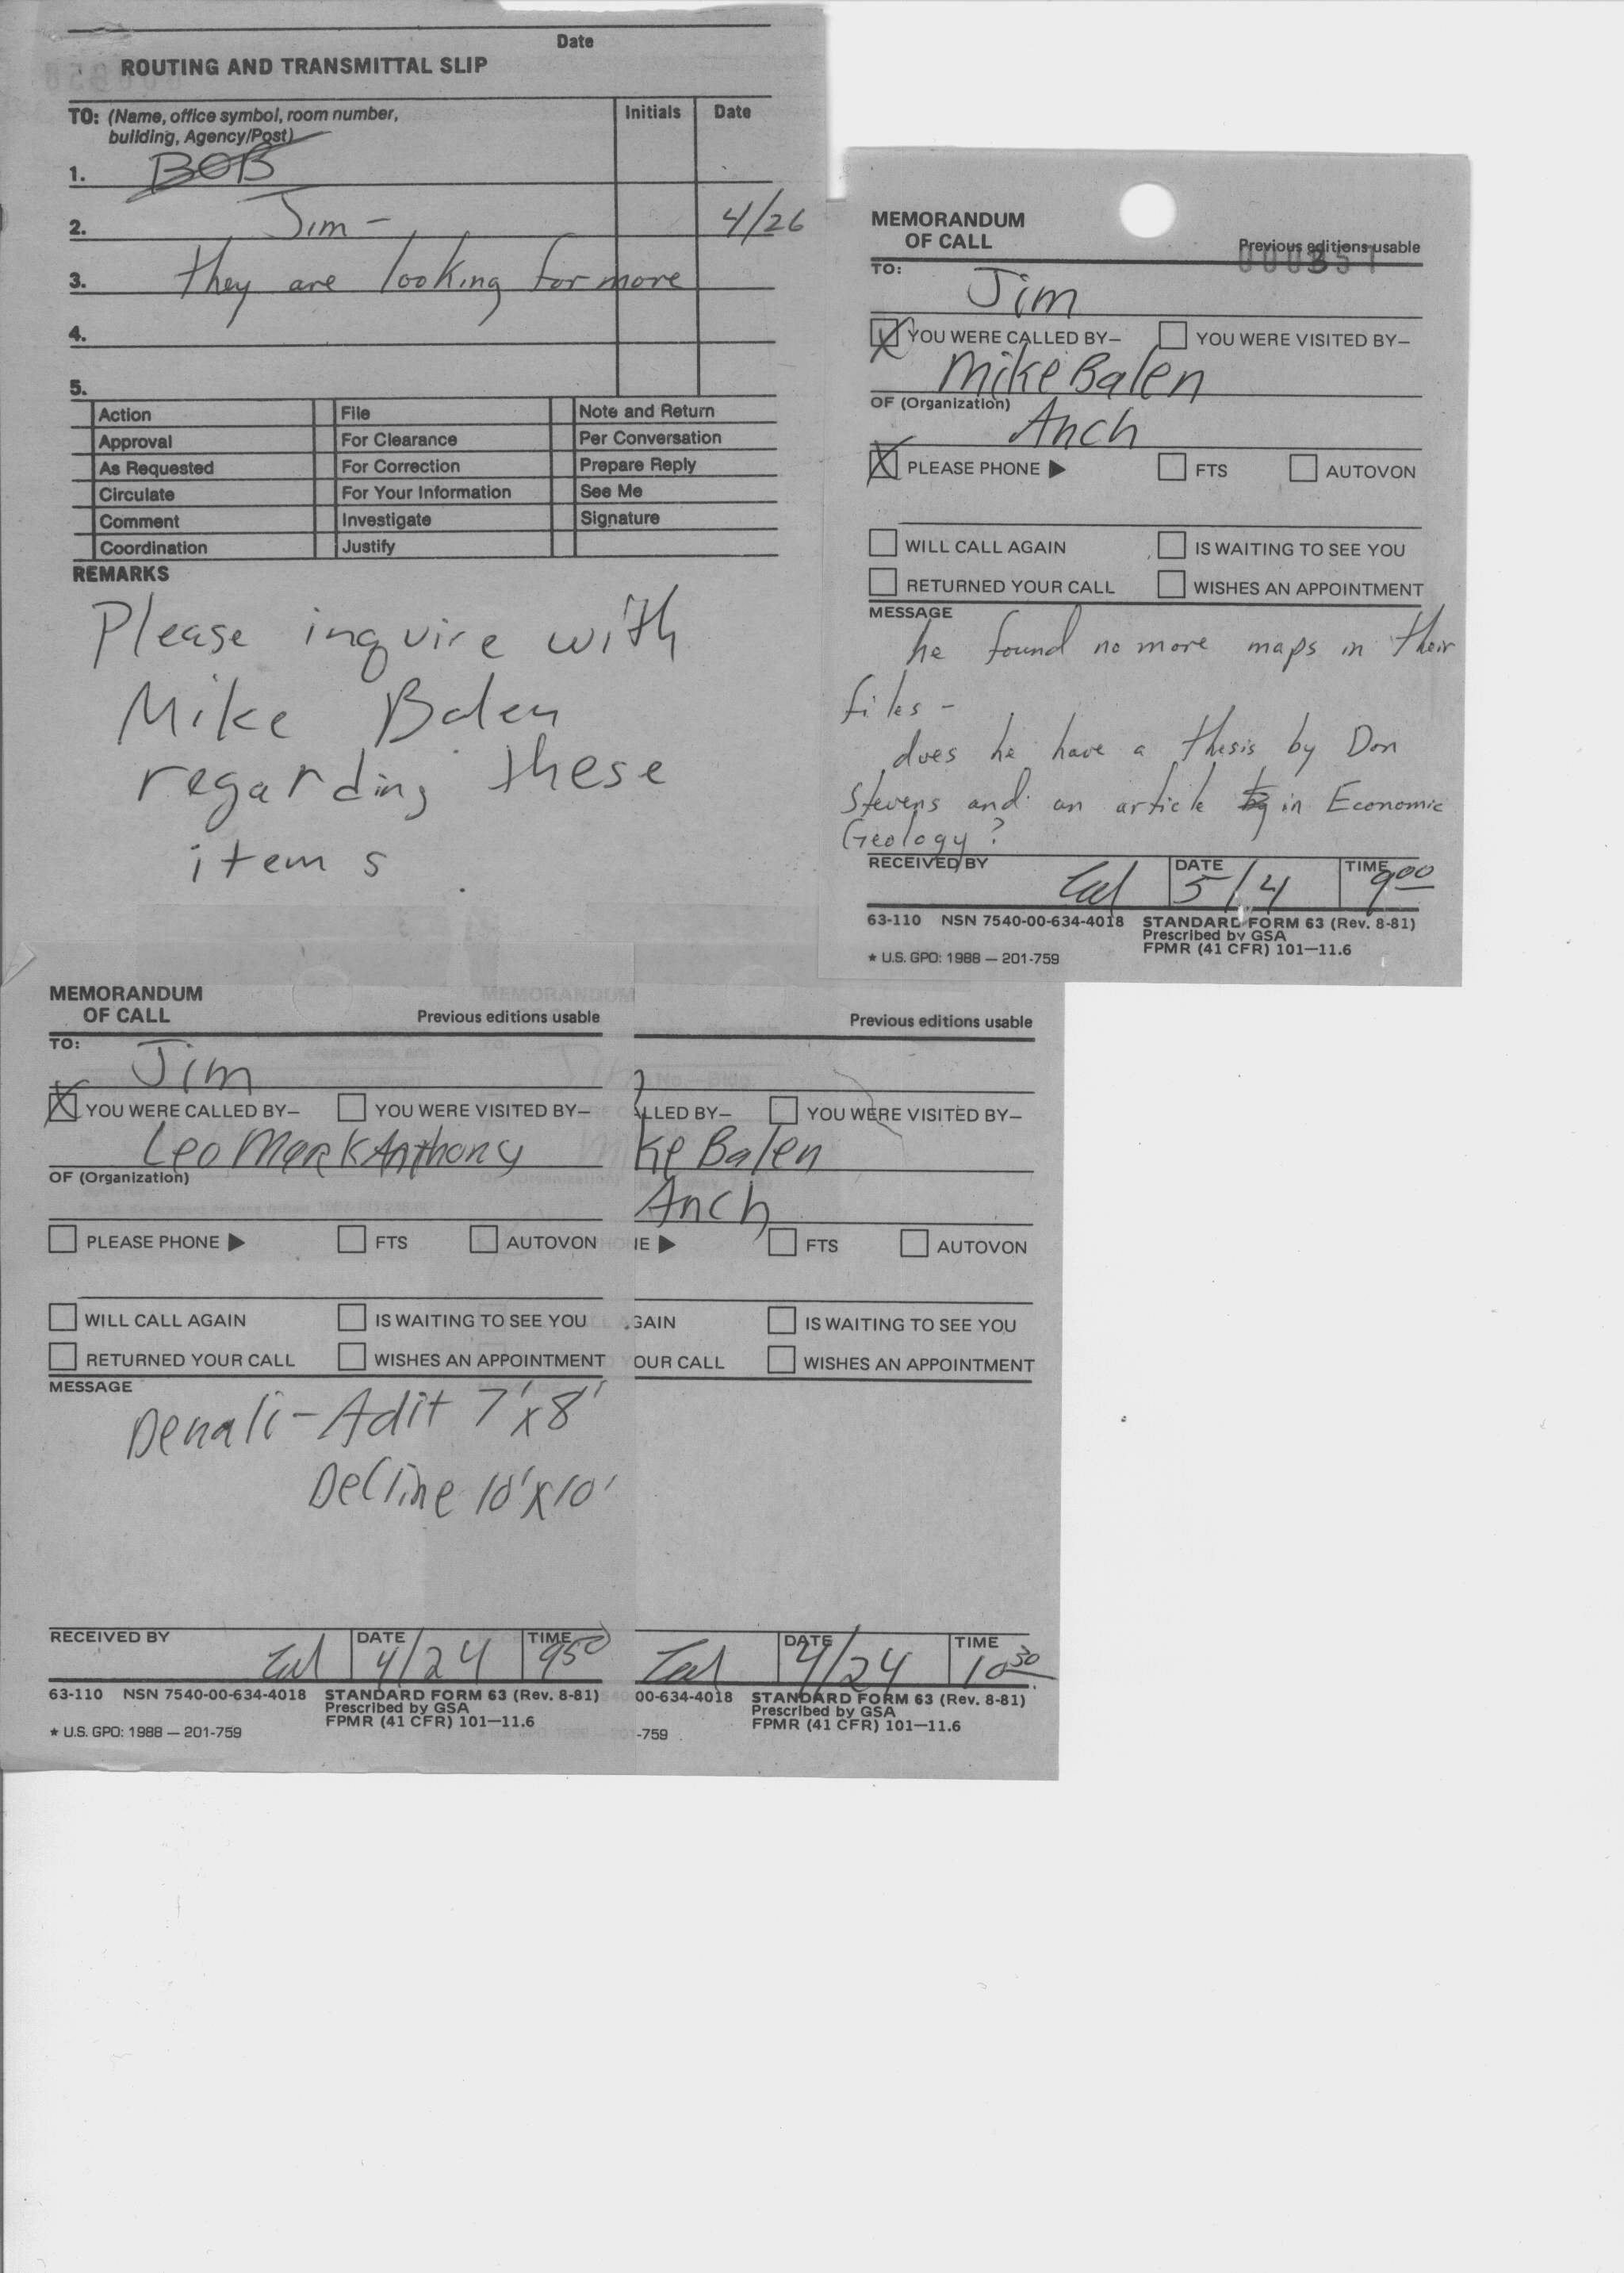 Date
ROUTING AND TRANSMITTAL SLIP
TO: (Name, office symbol, room number, Initials Date
building, Agency/Post)
1. BOB
2. Jim - 4/26
3. they are looking for more
4.
5.
Action File Note and Return
Approval For Clearance Per Conversation
As Requested For Correction Prepare Reply
Circulate For Your Information See Me
Comment Investigate Signature
Coordination Justify
REMARKS
Please inquire with
Mike Balen
regarding these
items
MEMORANDUM
OF CALL Previous editions usable
TO:
Jim
YOU WERE CALLED BY— YOU WERE VISITED BY—
Mike Balen
OF (Organization)
Anch
PLEASE PHONE ▶ FTS AUTOVON
WILL CALL AGAIN IS WAITING TO SEE YOU
RETURNED YOUR CALL WISHES AN APPOINTMENT
MESSAGE
he found no more maps in their
files -
does he have a thesis by Don
Stevens and an article by in Economic
Geology?
RECEIVED BY DATE 5/4 TIME 9 00
63-110 NSN 7540-00-634-4018 STANDARD FORM 63 (Rev. 8-81)
Prescribed by GSA
★ U.S. GPO: 1988 — 201-759 FPMR (41 CFR) 101—11.6
MEMORANDUM
OF CALL Previous editions usable
TO:
Jim
YOU WERE CALLED BY— YOU WERE VISITED BY—
Leo Mark Anthony
OF (Organization)
PLEASE PHONE ▶ FTS AUTOVON
WILL CALL AGAIN IS WAITING TO SEE YOU
RETURNED YOUR CALL WISHES AN APPOINTMENT
MESSAGE
Denali - Adit 7'x8'
Decline 10'x10'
RECEIVED BY DATE 4/24 TIME 9 50
63-110 NSN 7540-00-634-4018 STANDARD FORM 63 (Rev. 8-81)
Prescribed by GSA
★ U.S. GPO: 1988 — 201-759 FPMR (41 CFR) 101—11.6
Previous editions usable
LLED BY— YOU WERE VISITED BY—
ke Balen
Anch
NE ▶ FTS AUTOVON
GAIN IS WAITING TO SEE YOU
OUR CALL WISHES AN APPOINTMENT
DATE 4/24 TIME 10 30
00-634-4018 STANDARD FORM 63 (Rev. 8-81)
Prescribed by GSA
-759 FPMR (41 CFR) 101—11.6